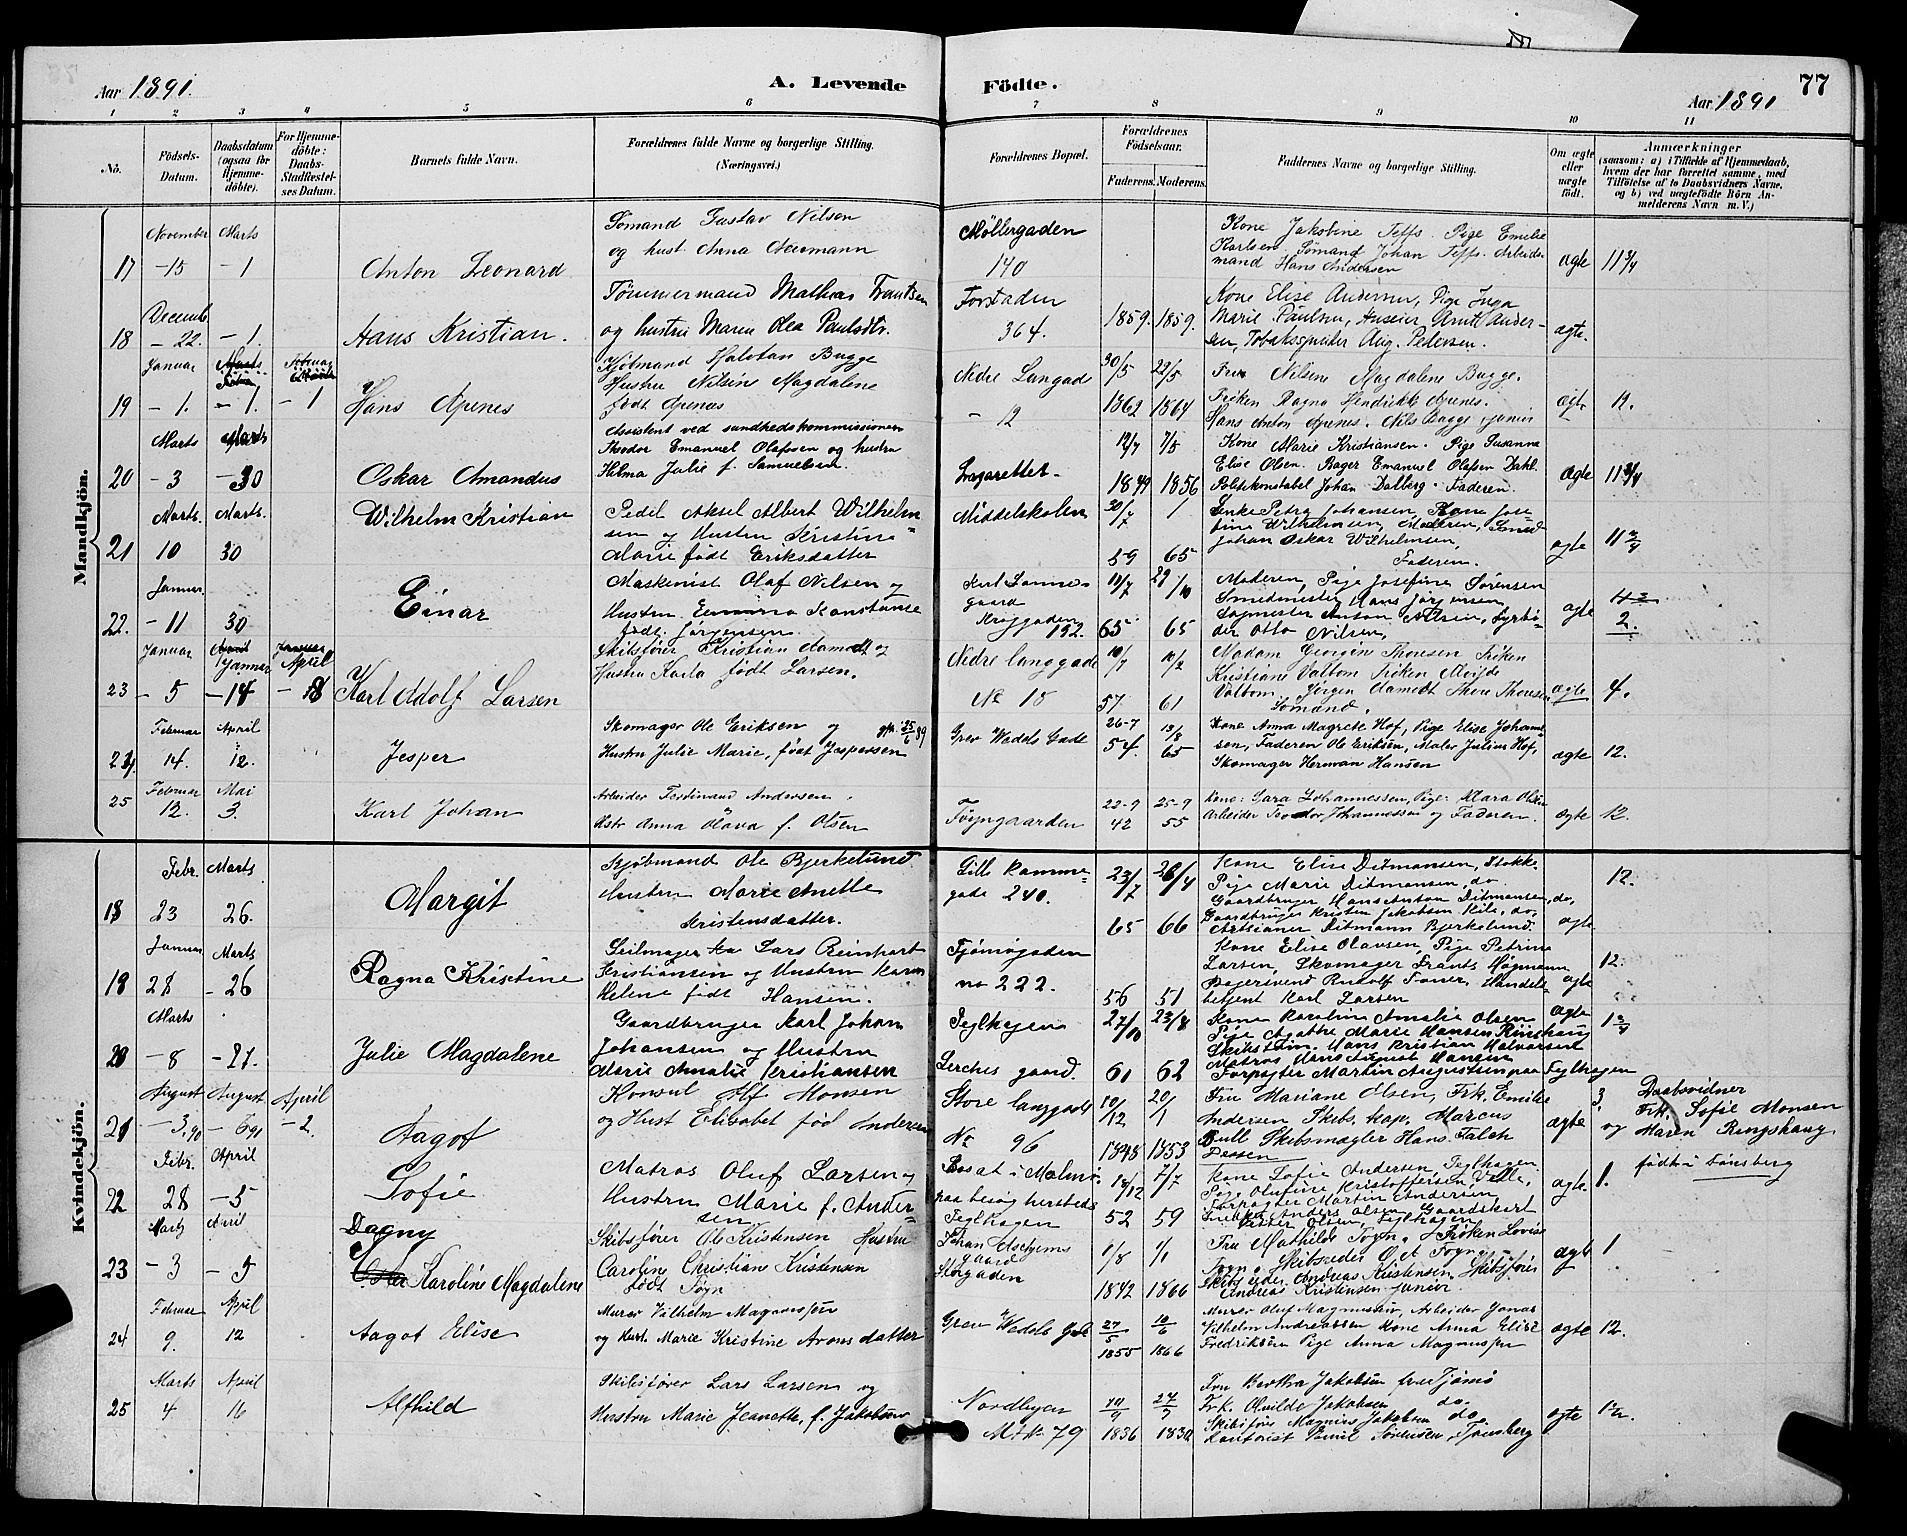 Aar 1891.
A. Levende Födte.
Aar 1891
77
1 2 3 4 5 6 7 8 9 10 11
No.
Födsels-Datum.
Daabsdatum (ogsaa for Hjemme-döbte).
For Hjemme-döbte: Daabs-Stadfæstel-ses Datum.
Barnets fulde Navn.
Forældrenes fulde Navne og borgerlige Stilling. (Næringsvei.)
Forældrenes Bopæl.
Forældrenes Födselsaar.
Faderens. Moderens.
Faddernes Navne og borgerlige Stilling.
Om ægte eller uægte födt.
Anmærkninger
(saasom: a) i Tilfælde af Hjemmedaab,
hvem der har forrettet samme, med
Tilföielse af to Daabsvidners Navne,
og b) ved uægtefödte Börn An-
melderens Navn m. V.)
Mandkjön.
November Marts
17 - 15 - 1
Anton Leonard
Sømand Gustav Nilsen
og hust. Anna Neumann
Møllergaden
140
Kone Jakobine Teffs. Pige Emelie
Karlsen. Sømand Johan Teffs. Arbeids-
mand Hans Andersen
ægte 11 3/4
Decemb
18 - 22. - 1.
Hans Kristian.
Tømmermand Mathias Frantsen
og hustru Maren Olea Paulsdtr.
Forstaden
364.
1859. 1859.
Kone Elise Andersen, Pige Inga
Marie Paulsen, Huseier Arnt Ander-
sen, Tobaksspinder Aug. Pedersen.
ægte.
Januar
19 - 1. - 1. - 1
Hans Apenes
Kjøbmand Halvdan Bugge
Hustru Nilsine Magdalene
født Apenæs
Nedre Langgade
- 12
30/5 22/5
1862 1864
Fru Nilsene Magdalene Bugge.
Frøken Ragna Hendrikke Apenes.
Hans Anton Apenes. Nils Bugge junior
ægte 12.
Marts Marts
20 - 3 - 30
Oskar Amandus
Assistent ved sundhedskommissionen
Theodor Emanuel Olafsen og hustru
Helma Julie f. Samuelsen.
Lazarettet
12/7 7/5
1849 1856
Kone Marie Kristiansen. Pige Susanna
Elise Olsen. Bager Emanuel Olafsen Dahl.
Politikonstabel Johan Dalberg. Faderen.
ægte 11 3/4
Marts. Marts.
21 10 30
Wilhelm Kristian
Pedel Aksel Albert Wilhelm
sen og Hustru Kristine
Marie født Eriksdatter
Middelskolen
59 65
Enke Petra Johansen, Kone Jose
fine Wilhelmsen, Moderen, Smed
Johan Oskar Wilhelmsen,
Faderen.
ægte 11 3/4
Januar
22. - 11 30
Einar
Maskinist Olaf Nilsen og
Hustru Emma Konstanse
født Jørgensen.
gaard
152.
65 65
Moderen, Pige Josefine Sørensen
Smedmester Hans Jørgensen,
Anton Nilsen, Fyrbø-
der Otto Nilsen,
ægte 2.
Januar Januar April
23 - 5 - 14 - 18
Karl Adolf Larsen
Skibsfører Kristian Aamodt og
Hustru Karla født Larsen.
Nedre langgade
No 18
10/7 10/2
57 61
Madam Georgine Thoresen Frøken
Kristiane Valbom Frøken
Valbom. Jørgen Aamodt Thore Thoresen
Sømand.
ægte 4.
Februar April
24. 14. 12.
Jesper
Skomager Ole Eriksen og gft. 25/6 89
Hustru Julie Marie, født Jespersen
Grev Wedels Gade
26-7 13/8
54. 65
Kone Anna Magrete Hof, Pige Elise Johann-
sen, Faderen Ole Eriksen, Maler Julius Hof,
Skomager Herman Hansen
ægte 12.
Februar Mai
25 12. 3.
Karl Johan
Arbeider Ferdinand Andersen.
Hstr Anna Olava f. Olsen
Føyngaarden
22-9 25-9
42 55
Kone: Sara Johannessen, Pige: Klara Olsen
Arbeider Teodor Johannessen og Faderen.
ægte 12.
Kvindekjön.
Febr. Marts
18 23 26.
Margit
Kjøbmand Ole Bjerkelund.
Hustru Marie Anette
Kristensdatter.
Lille Kamme-
gade 240.
23/7 26/4
65 66
Kone Elise Ditmansen, Stokke
Pige Marie Ditmansen, do
Gaardbruger Hans Anton Ditmansen, do,
Gaardbruger Kristen Jakobsen Kile, do,
Artsianer Ditmann Bjerkelund.
ægte 12.
Januar Marts
19 28 - 26
Ragna Kristine
Seilmager Lars Reinhart
Kristiansen og Hustru Karen
Helene født Hansen.
Tjømøgaden
no 222.
56 51
Kone Elise Olavsen, Pige Petrine
Larsen, Skomager Frants Høpmann
Bagersvend Rudolf Foner, Handels-
betjent Karl Larsen
ægte 12.
Marts
20 - 8 - 27.
Julie Magdalene
Gaardbruger Karl Johan
Johansen og Hustru
Marie Amalie Kristiansen
Teglhagen
Lerches gaard.
27/10 23/8
61 62
Kone Karoline Amalie Olsen
Pige Agathe Marie Hansen Ringshaug
Skibstøm. Hans Kristian Halvorsen
Matros Hans August Hansen
Forpagter Martin Augustinpaa Teglhagen
ægte 1 3/4
August August April
21 - 3. 90 - 6 90 - 2.
Aagot
Konsul Alf Monsen
og Hust Elisabet fød Andersen
Store langgade
No 96
10/12 20/1
1848 1853
Fru Mariane Olsen, Frk. Emilie
Andersen Skibskap. Marcus
Bull Skibsmægler Hans Falch
Dessen
ægte 3.
Daabsvidner
Frk. Sofie Monsen
og Maren Ringshaug
født i Tønsberg
Febr. April
22 28 - 5
Sofie
Matros Oluf Larsen og
Hustru Marie f. Ander-
sen
Bosat i Malmø
paa besøg hersteds
Teglhagen
18/12 7/7
52 59
Kone Sofie Andersen, Teglhagen
Pige Olufine Kristoffersen, Velle,
Forpagter Martin Andersen,
Anders Olsen, Gaardskarl
Petter Olsen, Teglhagen
ægte 1.
Marts April
23 - 3 - 5
Dagny
Karoline Magdalene
Skibsfører Ole Kristensen Hustru
Caroline Christiane Kristensen
født Føyn
gaard
Storgaden
1/8 1/1
1842 1866
Fru Mathilde Foyn, Frøken Lovise
Foyn, Skibsreder Foyn,
Skibsreder Andreas Kristensen, Skibsfører
Andreas Kristensen junior.
ægte 1
Februar April
24 9. 12
Aagot Elise
Murer Vilhelm Magnussen
og Hust. Marie Kristine Aronsdatter
Grev Wedels Gade
27/5 10/6
1855 1866
Murer Oluf Magnussen, Arbeider Jonas
Vilhelm Andreassen Kone Anna Elise
Fredriksen Pige Anna Magnussen
ægte 12.
Marts April
25 4 16
Alfhild
Skibsfører Lars Larsen og
Hustru Marie Jeanette, f. Jakobsen
Nordbyen
M. No 79
10/9 27/9
1836 1830
Fru Berthra Jakobsen fra Tjømø
Frk. Jakobsen do.
Skibsfører Magnus Jakobsen do.
Kontorist Sørensen, Tønsberg
ægte 12.